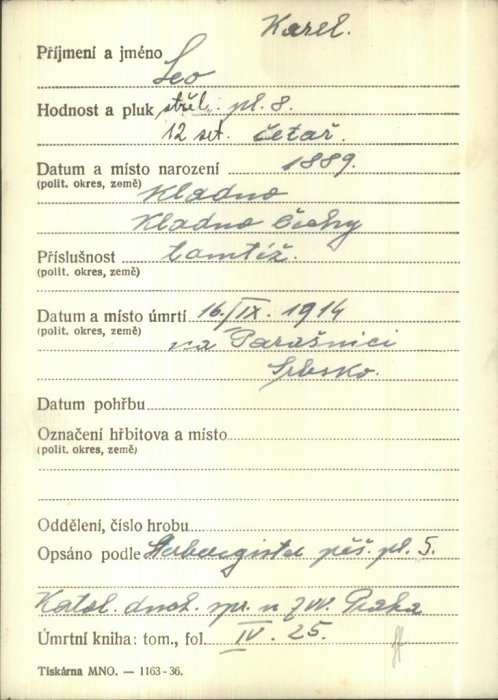 Karel.
Příjmení a jméno Leo
Hodnost a pluk střel. pl. 8.
12 set. četař.
Datum a místo narození 1889.
(polit. okres, země) Kladno
Kladno Čechy
Příslušnost tamtéž.
(polit. okres, země)
Datum a místo úmrtí 16./IX. 1914
(polit. okres, země) na Parašnici
Srbsko.
Datum pohřbu
Označení hřbitova a místo
(polit. okres, země)
Oddělení, číslo hrobu
Opsáno podle pěš. pl. 5.
Katol. duch. spr. n ZVV. Praha
Úmrtní kniha: tom., fol. IV. 25.
Tiskárna MNO. — 1163-36.